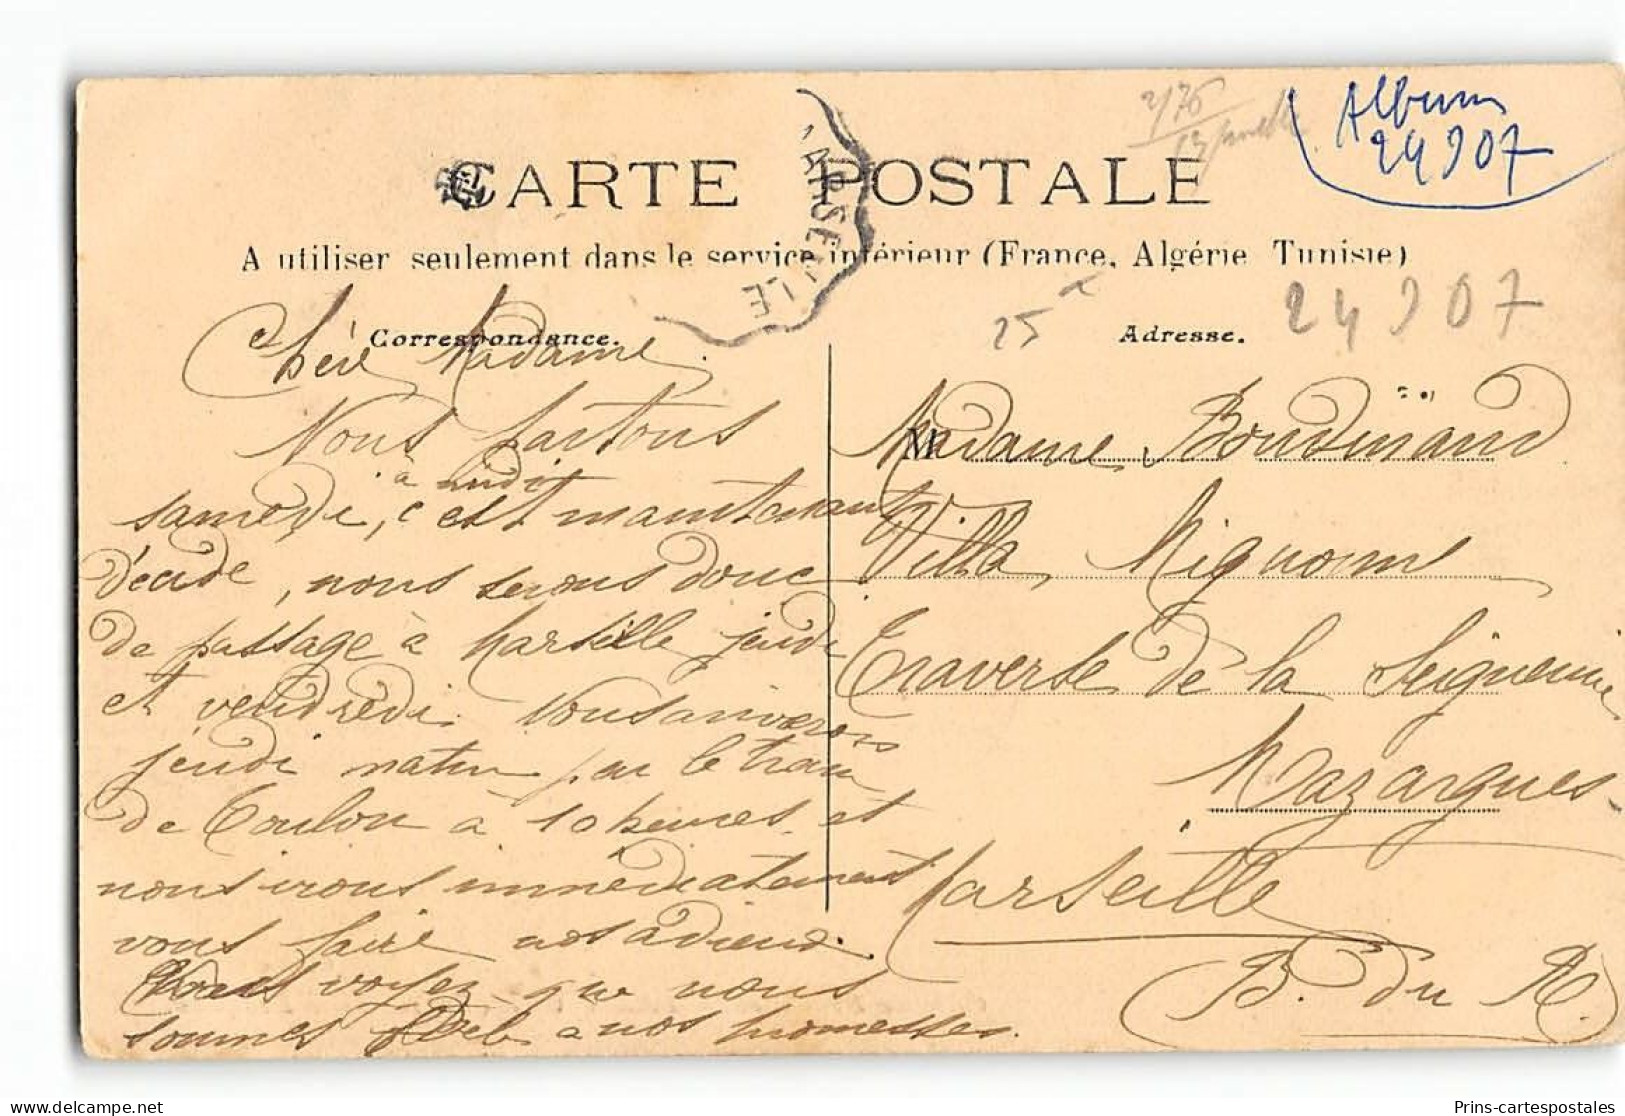 Album
24907
CARTE POSTALE
MARSEILLE
A utiliser seulement dans le service intérieur (France, Algérie Tunisie)
25
24907
Correspondance.
Adresse.
Chère Madame.
Nous partons
à midi
samedi, c'est maintenant
décidé, nous serons donc
de passage à Marseille jeudi
et vendredi. Vous arriverons
jeudi matin par le train
de Toulon à 10 heures et
nous irons immédiatement
vous faire nos adieux.
Vous voyez que nous
sommes fidèles à nos promesses.
M
Madame
Villa Mignonne
Traverse de la Seigneurie
Mazargues
Marseille
B. du R.
Prins-cartespostales